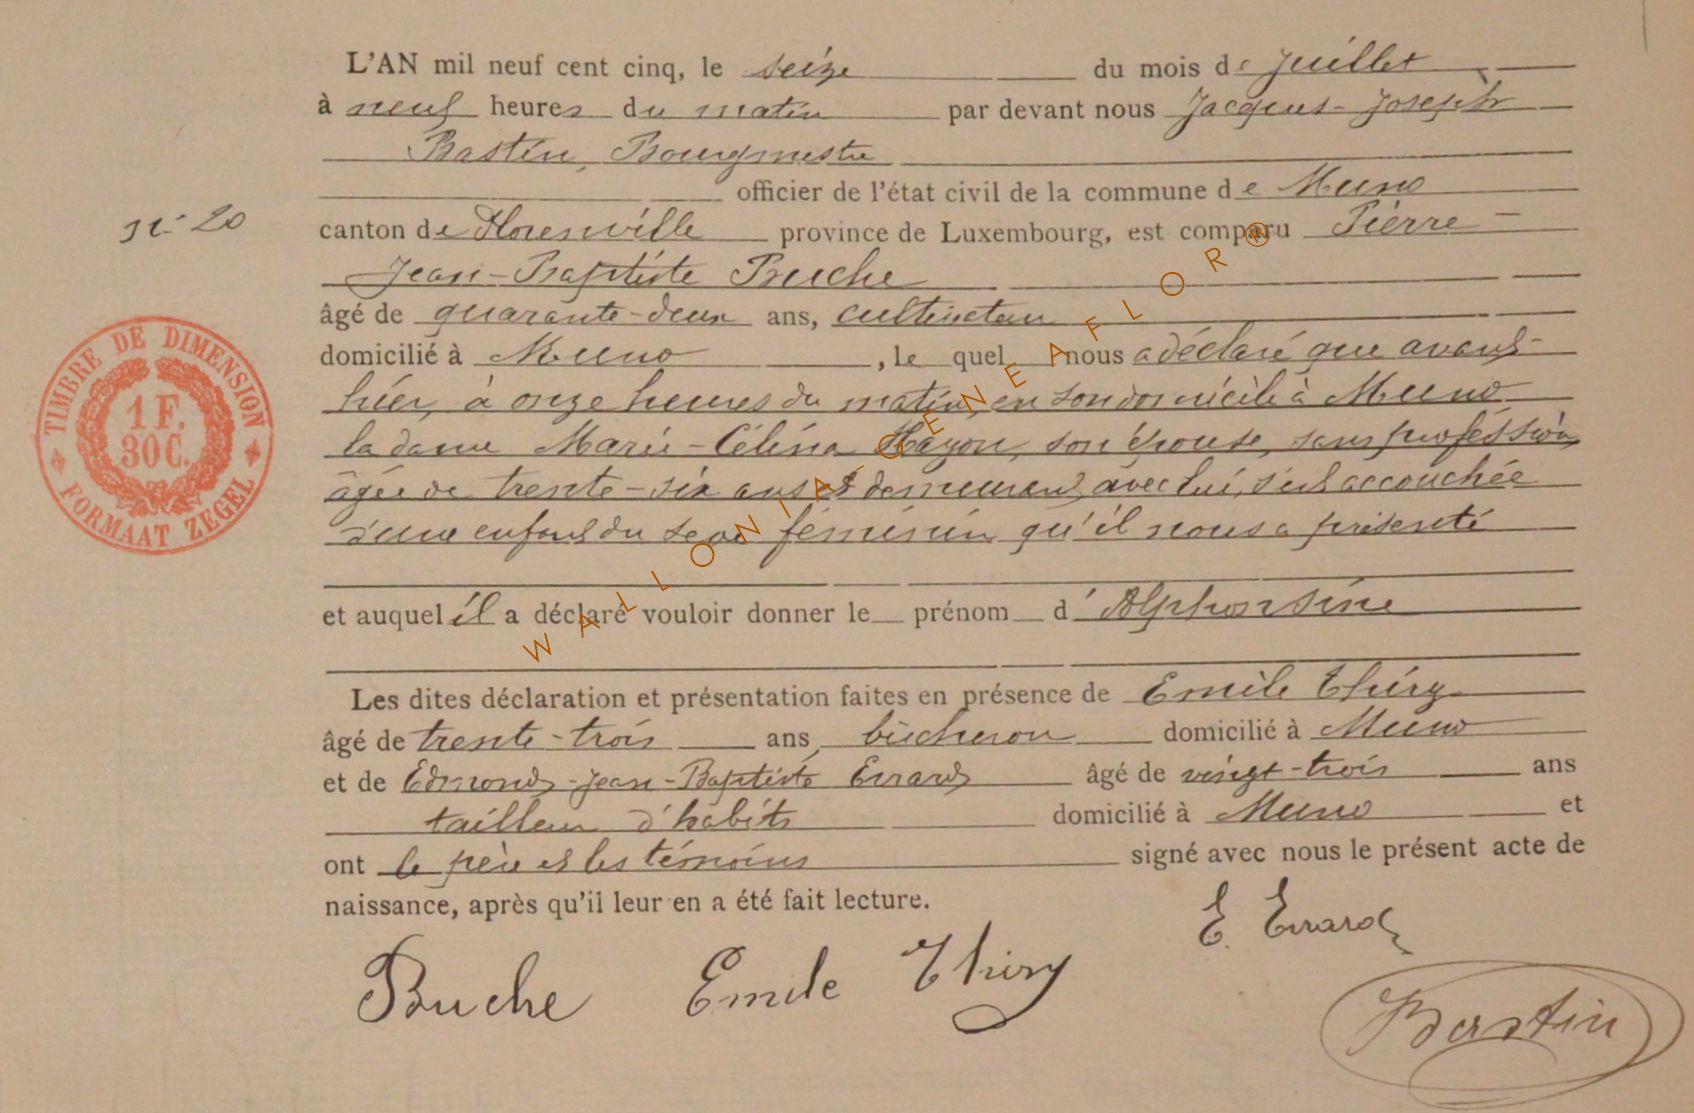 L'AN mil neuf cent cinq, le seize du mois de juillet
à neuf heures du matin par devant nous Jacques-Joseph
Bastin, Bourgmestre
officier de l'état civil de la commune de Muno
n° 20
canton de Florenville province de Luxembourg, est comparu Pierre-
Jean-Baptiste Buche
âgé de quarante-deux ans, cultivateur
domicilié à Muno, le quel nous a déclaré que avant-
hier, à onze heures du matin, en son domicile à Muno
la dame Marie-Célina Hayon, son épouse, sans profession,
âgée de trente-six ans et demeurant avec lui, s'est accouchée
d'une enfant du sexe féminin qu'il nous a présenté
et auquel il a déclaré vouloir donner le prénom d'Alphonsine
Les dites déclaration et présentation faites en présence de Emile Thiry
âgé de trente-trois ans, bûcheron domicilié à Muno
et de Edmond-Jean-Baptiste Errard âgé de vingt-trois ans
tailleur d'habits domicilié à Muno et
ont le père et les témoins signé avec nous le présent acte de
naissance, après qu'il leur en a été fait lecture.
E. Errard
Buche Emile Thiry
Bastin
TIMBRE DE DIMENSION
1 F.
30 C.
FORMAAT ZEGEL
WALLONIA-GENEAFLOR®